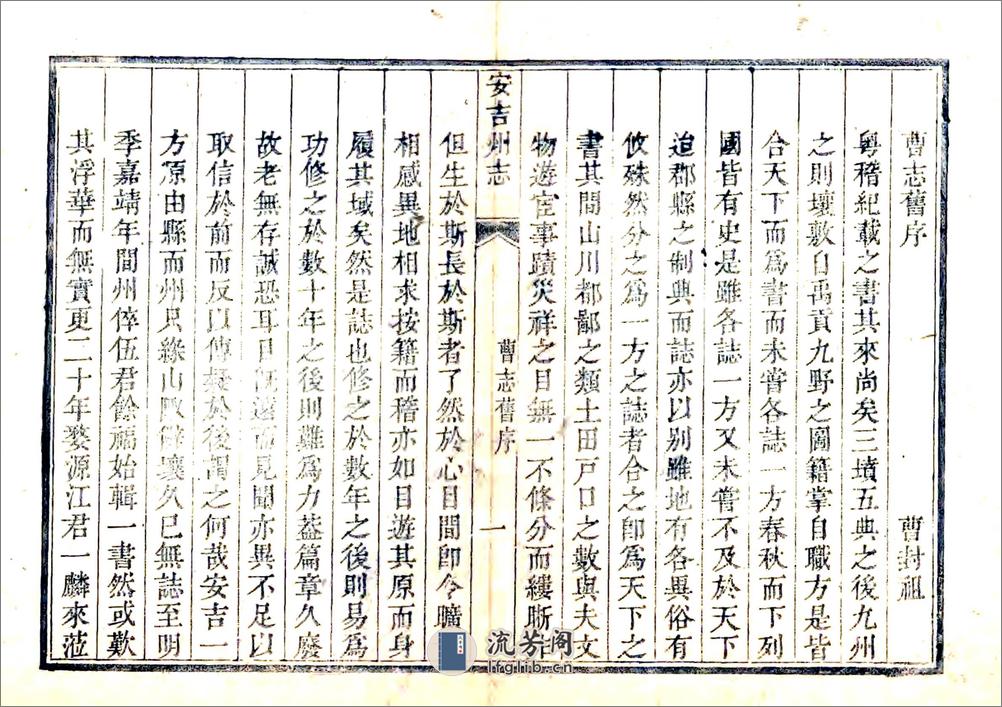 曹志舊序 曹封祖
粵稽紀載之書其來尚矣三墳五典之後九州
之則壤敷自禹貢九野之圖籍掌自職方是皆
合天下而爲書而未嘗各誌一方春秋而下列
國皆有史是雖各誌一方又未嘗不及於天下
迨郡縣之制興而誌亦以別雖地有各異俗有
攸殊然分之爲一方之誌者合之卽爲天下之
書其間山川都鄙之類土田戸口之數與夫文
物遊宦事蹟災祥之目無一不條分而縷晰
安吉州志 曹志舊序 一
但生於斯長於斯者了然於心目間卽令曠
相感異地相求按籍而稽亦如目遊其原而身
履其域矣然是誌也修之於數年之後則易爲
功修之於數十年之後則難爲力葢篇章久廢
故老無存誠恐耳目旣遠而見聞亦異不足以
取信於前而反以傳疑於後謂之何哉安吉一
方原由縣而州只緣山陬僻壤久已無誌至明
季嘉靖年間州倅伍君餘福始輯一書然或歎
其浮華而無實更二十年婺源江君一麟來蒞
流芳閣
lfglib.cn